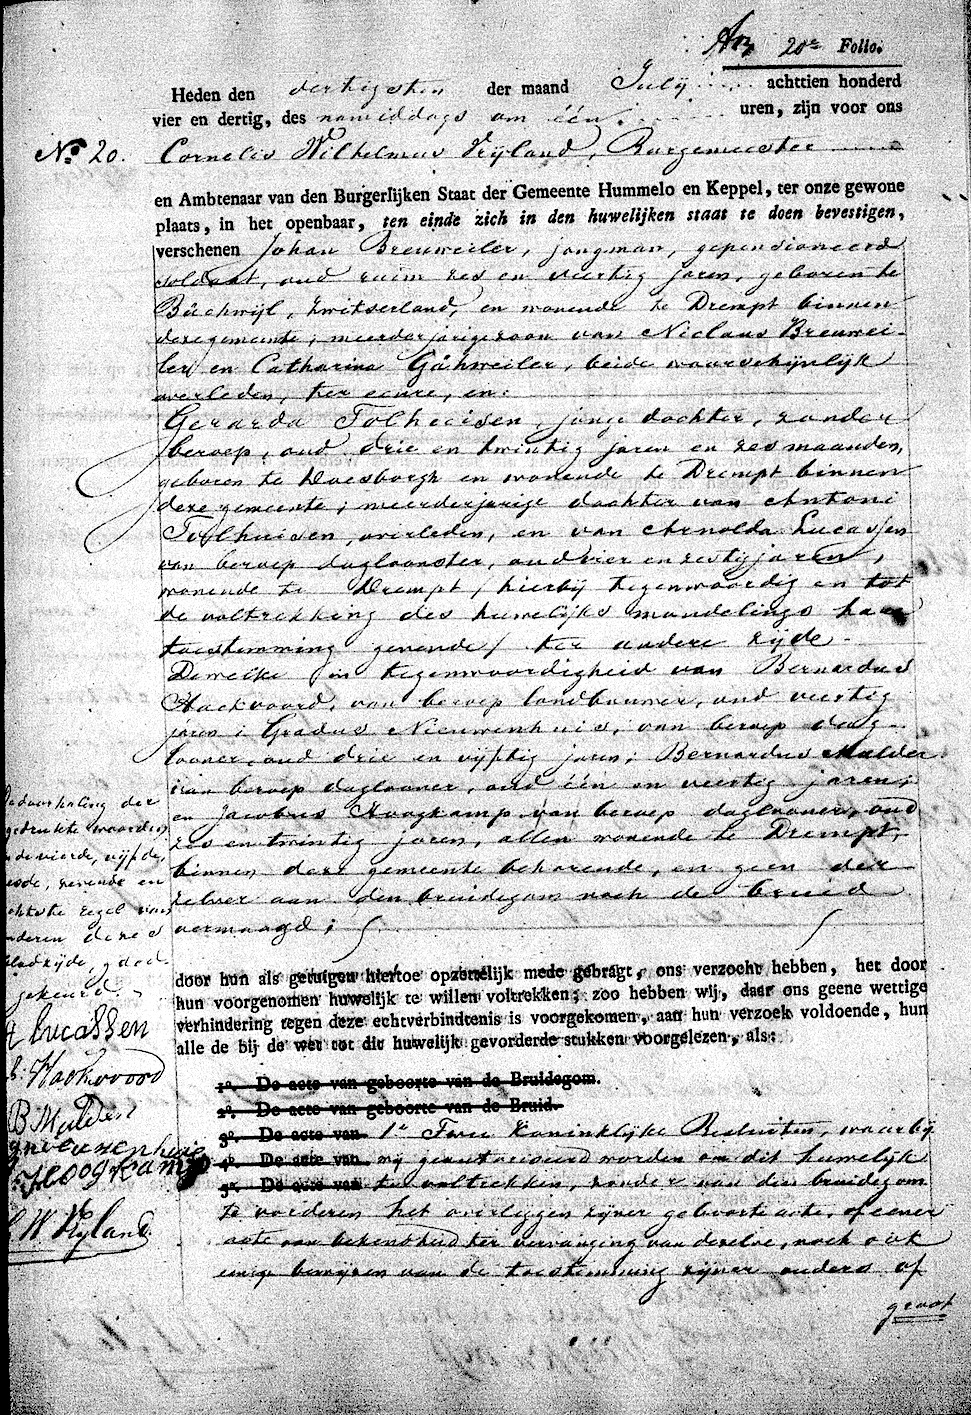 20e Folio.
Heden den dertigsten der maand Julij achttien honderd
vier en dertig, des namiddags om één uren, zijn voor ons
No. 20. Cornelis Wilhelmus Vrijland, Burgemeester
en Ambtenaar van den Burgerlijken Staat der Gemeente Hummelo en Keppel, ter onze gewone
plaats, in het openbaar, ten einde zich in den huwelijken staat te doen bevestigen,
verschenen Johan Breuweiler, jongman, gepensioneerd
soldaat, oud ruim zes en veertig jaren, geboren te
Büchwijl, Zwitserland, en wonende te Drempt binnen
deze gemeente; meerderjarige zoon van Niclaus Breuwei-
ler en Catharina Gähweiler, beide waarschijnlijk
overleden, ter eenre, en:
Gerarda Tolhuisen, jonge dochter, zonder
beroep, oud drie en twintig jaren en zes maanden,
geboren te Doesborgh en wonende te Drempt binnen
deze gemeente; meerderjarige dochter van Antoni
Tolhuisen, overleden, en van Arnolda Lucassen
van beroep daglooonster, oud vier en zestig jaren,
wonende te Drempt / hierbij tegenwoordig en tot
de voltrekking des huwelijks mondelings haar
toestemming gevende / ter andere zijde.
Dewelke in tegenwoordigheid van Bernardus
Hackvoord, van beroep landbouwer, oud veertig
jaren; Gradus Nieuwenhuis, van beroep dag-
looner, oud drie en vijftig jaren; Bernardus Mulder
van beroep daglooner, oud één en veertig jaren;
en Jacobus Hoogkamp van beroep daglooner, oud
zes en twintig jaren, allen wonende te Drempt,
binnen deze gemeente behorende, en geen der
zelver aan den bruidegom noch de bruid
vermaagd;
door hun als getuigen hiertoe opzettelijk mede gebragt, ons verzocht hebben, het door
hun voorgenomen huwelijk te willen voltrekken; zoo hebben wij, daar ons geene wettige
verhindering tegen deze echtverbindtenis is voorgekomen, aan hun verzoek voldoende, hun
alle de bij de wet tot dit huwelijk gevorderde stukken voorgelezen, als:
1o. De acte van geboorte van de Bruidegom.
2o. De acte van geboorte van de Bruid.
3o. De acte van 1e Twee Koninklijke Besluiten, waarbij
4o. De acte van wij geautoriseerd worden om dit huwelijk
5o. De acte van te voltrekken, zonder van den bruidegom
te vorderen het overleggen zijner geboorte acte, of eener
acte van bekendheid ter vervanging van dezelve, noch ook
eenige bewijzen van de toestemming zijner ouders of
groot
De doorhaling der
gedrukte woorden
in de vierde, vijfde,
zesde, zevende en
achtste regel van
onderen dezes
bladzijde, goed-
gekeurd.
A Lucassen
B: Hackvoord
B Mulder
G nieuwenhuis
J: Hoogkamp
C W Vrijland